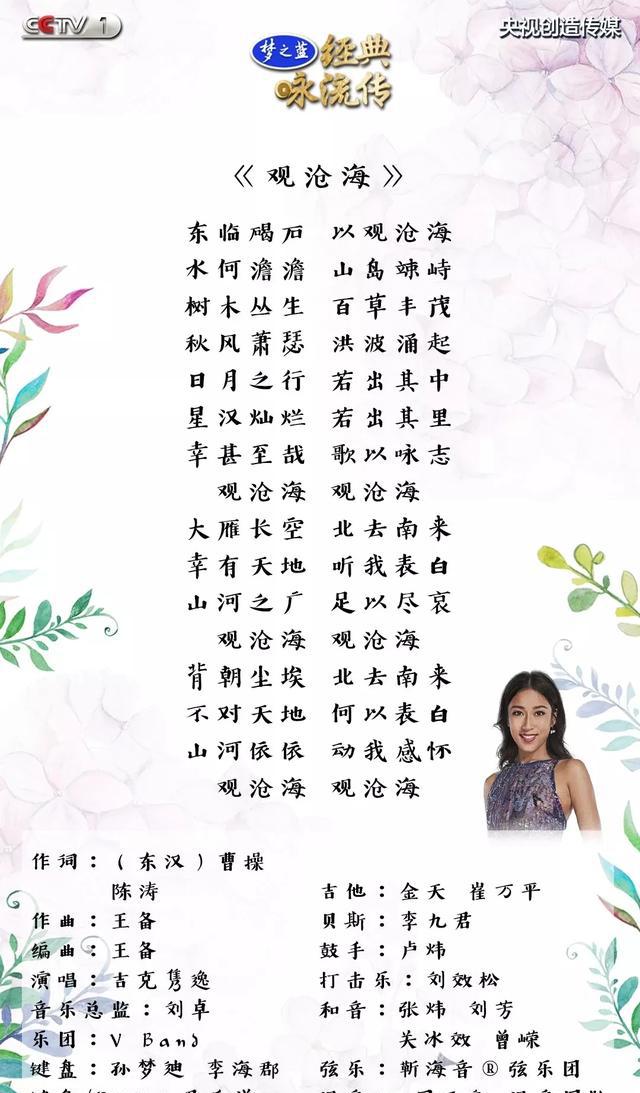 CCTV 1
央视创造传媒
梦之蓝 经典
咏流传
《观沧海》
东临碣石 以观沧海
水何澹澹 山岛竦峙
树木丛生 百草丰茂
秋风萧瑟 洪波涌起
日月之行 若出其中
星汉灿烂 若出其里
幸甚至哉 歌以咏志
观沧海 观沧海
大雁长空 北去南来
幸有天地 听我表白
山河之广 足以尽哀
观沧海 观沧海
背朝尘埃 北去南来
不对天地 何以表白
山河依依 动我感怀
观沧海 观沧海
作词：（东汉）曹操
陈涛
作曲：王备
编曲：王备
演唱：吉克隽逸
音乐总监：刘卓
乐团：V Band
键盘：孙梦迪 李海郡
吉他：金天 崔万平
贝斯：李九君
鼓手：卢炜
打击乐：刘效松
和音：张炜 刘芳
关冰效 曾嵘
弦乐：靳海音®弦乐团